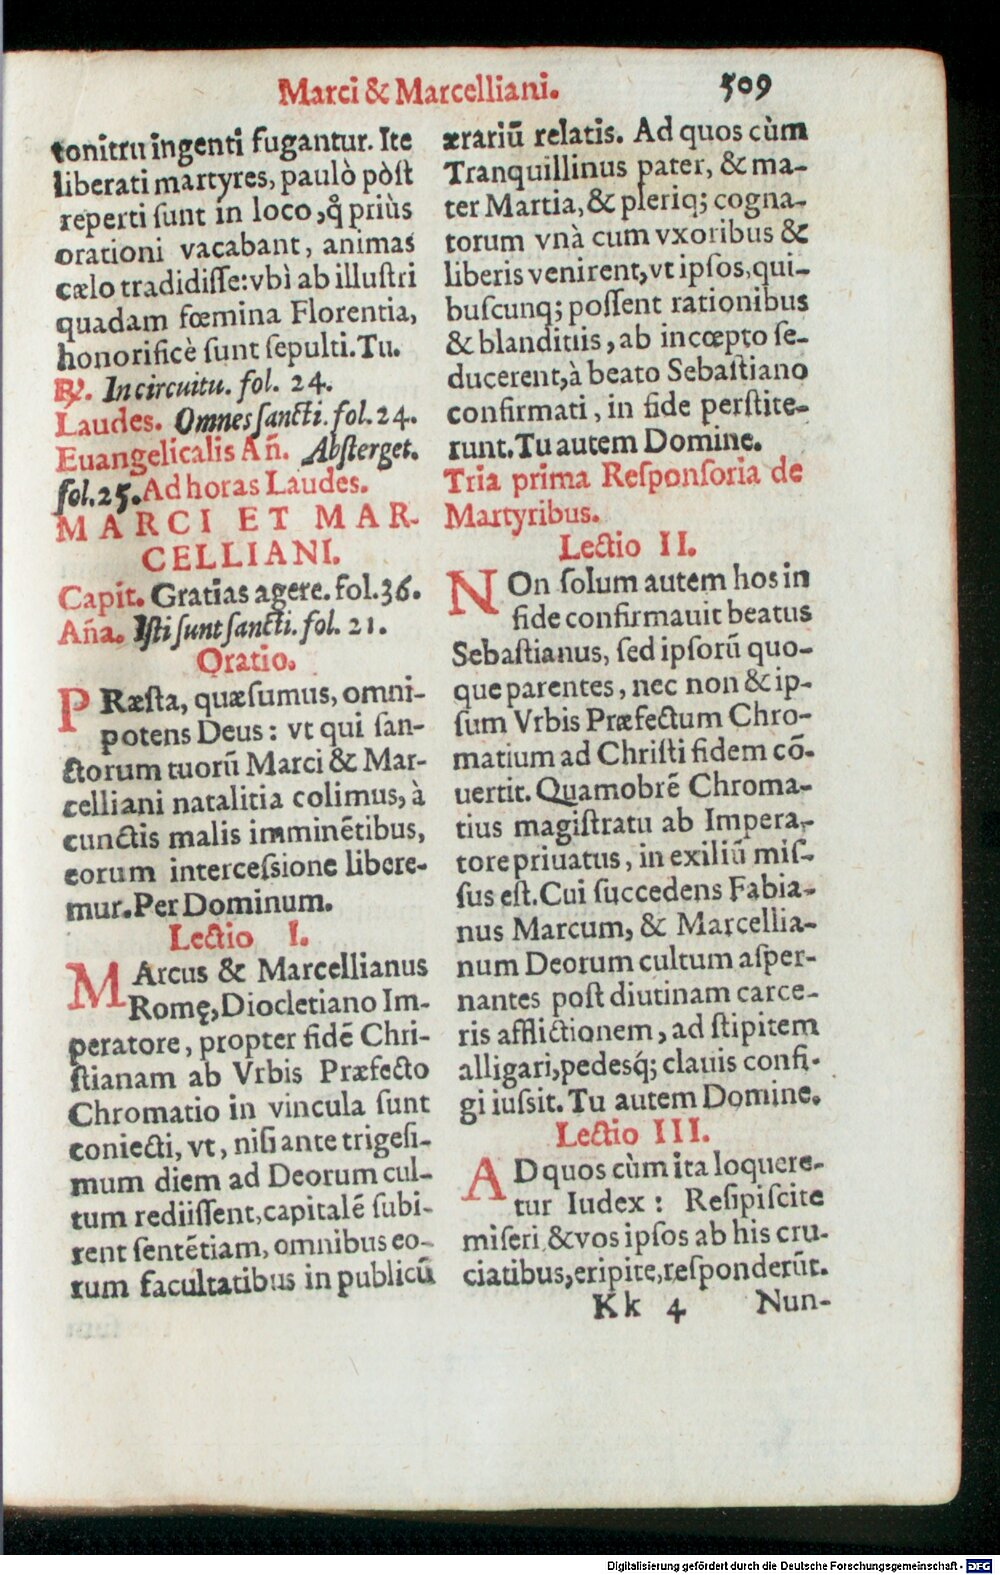 Marci & Marcelliani. 509
tonitru ingenti fugantur. Ite
liberati martyres, paulò pòſt
reperti ſunt in loco, q̊ priùs
orationi vacabant, animas
cælo tradidiſſe: vbì ab illuſtri
quadam fœmina Florentia,
honorificè ſunt ſepulti. Tu.
℟. In circuitu. fol. 24.
Laudes. Omnes ſancti. fol. 24.
Euangelicalis Añ. Abſterget.
fol. 25. Ad horas Laudes.
MARCI ET MAR-
CELLIANI.
Capit. Gratias agere. fol. 36.
Aña. Iſti ſunt ſancti. fol. 21.
Oratio.
PRæſta, quæſumus, omni-
potens Deus: vt qui ſan-
ctorum tuorũ Marci & Mar-
celliani natalitia colimus, à
cunctis malis imminẽtibus,
eorum interceſsione libere-
mur. Per Dominum.
Lectio I.
MArcus & Marcellianus
Romę, Diocletiano Im-
peratore, propter fidẽ Chri-
ſtianam ab Vrbis Præfecto
Chromatio in vincula ſunt
coniecti, vt, niſi ante trigeſi-
mum diem ad Deorum cul-
tum rediiſſent, capitalẽ ſubi-
rent ſentẽtiam, omnibus eo-
rum facultatibus in publicũ
ærariũ relatis. Ad quos cùm
Tranquillinus pater, & ma-
ter Martia, & pleriq; cogna-
torum vnà cum vxoribus &
liberis venirent, vt ipſos, qui-
buſcunq; poſſent rationibus
& blanditiis, ab incœpto ſe-
ducerent, à beato Sebaſtiano
confirmati, in fide perſtite-
runt. Tu autem Domine.
Tria prima Reſponſoria de
Martyribus.
Lectio II.
NOn ſolum autem hos in
fide confirmauit beatus
Sebaſtianus, ſed ipſorũ quo-
que parentes, nec non & ip-
ſum Vrbis Præfectum Chro-
matium ad Chriſti fidem cõ-
uertit. Quamobrẽ Chroma-
tius magiſtratu ab Impera-
tore priuatus, in exiliũ miſ-
ſus eſt. Cui ſuccedens Fabia-
nus Marcum, & Marcellia-
num Deorum cultum aſper-
nantes poſt diutinam carce-
ris afflictionem, ad ſtipitem
alligari, pedesq́; clauis confi-
gi iuſsit. Tu autem Domine.
Lectio III.
AD quos cùm ita loquere-
tur Iudex: Reſipiſcite
miſeri, & vos ipſos ab his cru-
ciatibus, eripite, reſponderũt.
Kk 4 Nun-
Digitalisierung gefördert durch die Deutsche Forschungsgemeinschaft - DFG